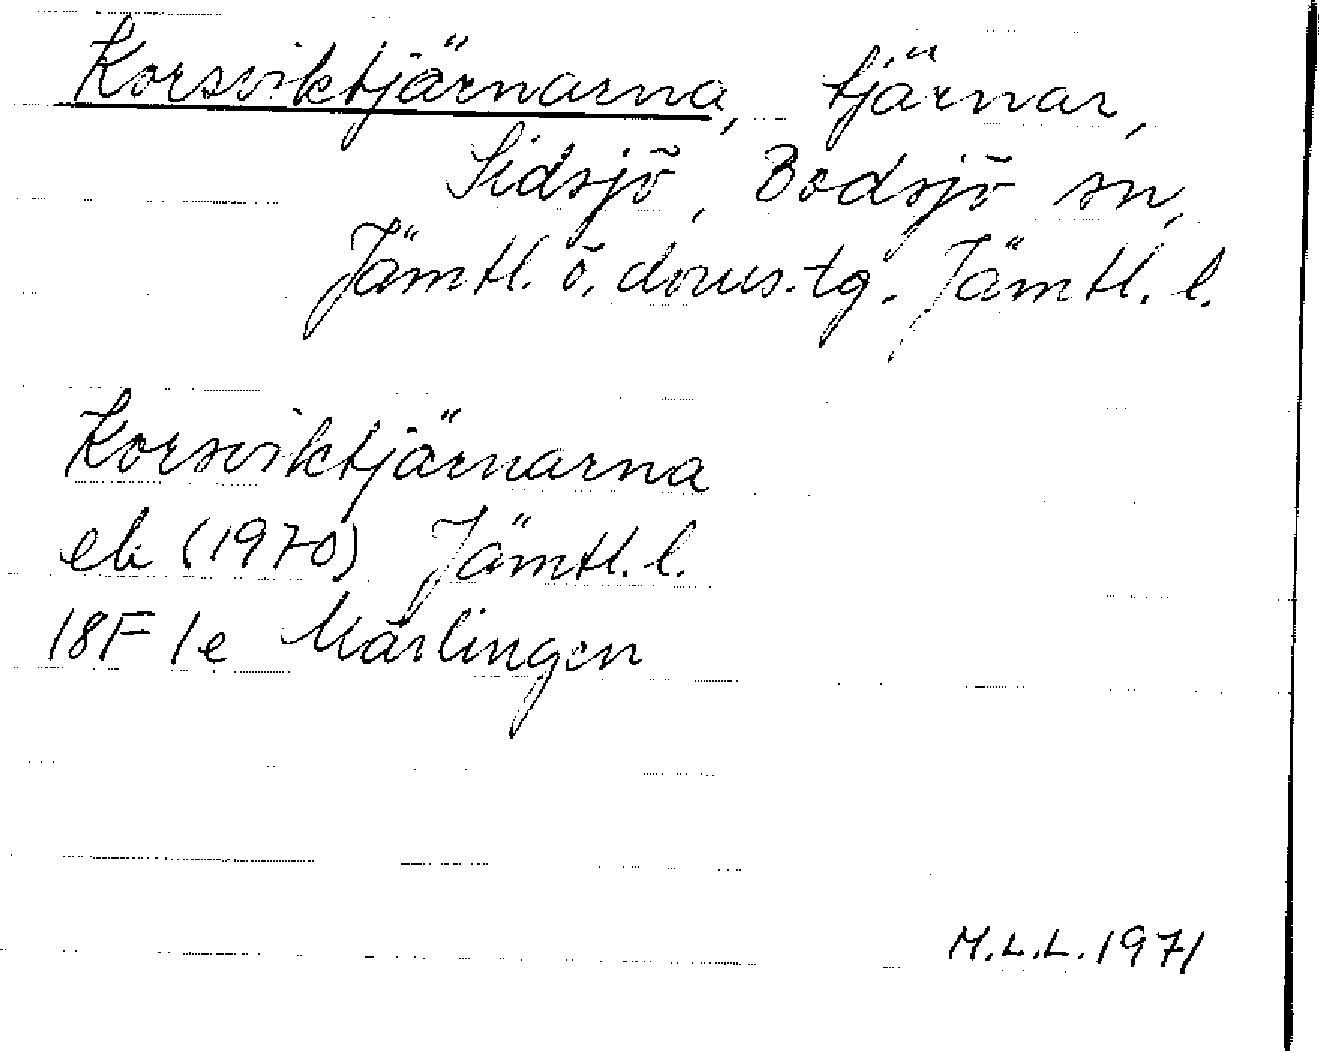 Korsviktjärnarna, tjärnar,
Sidsjö, Bodsjö sn,
Jämtl. ö. doms.tg. Jämtl. l.
Korsviktjärnarna
ek (1970) Jämtl. l.
18F 1e Märlingen
M.L.L. 1971